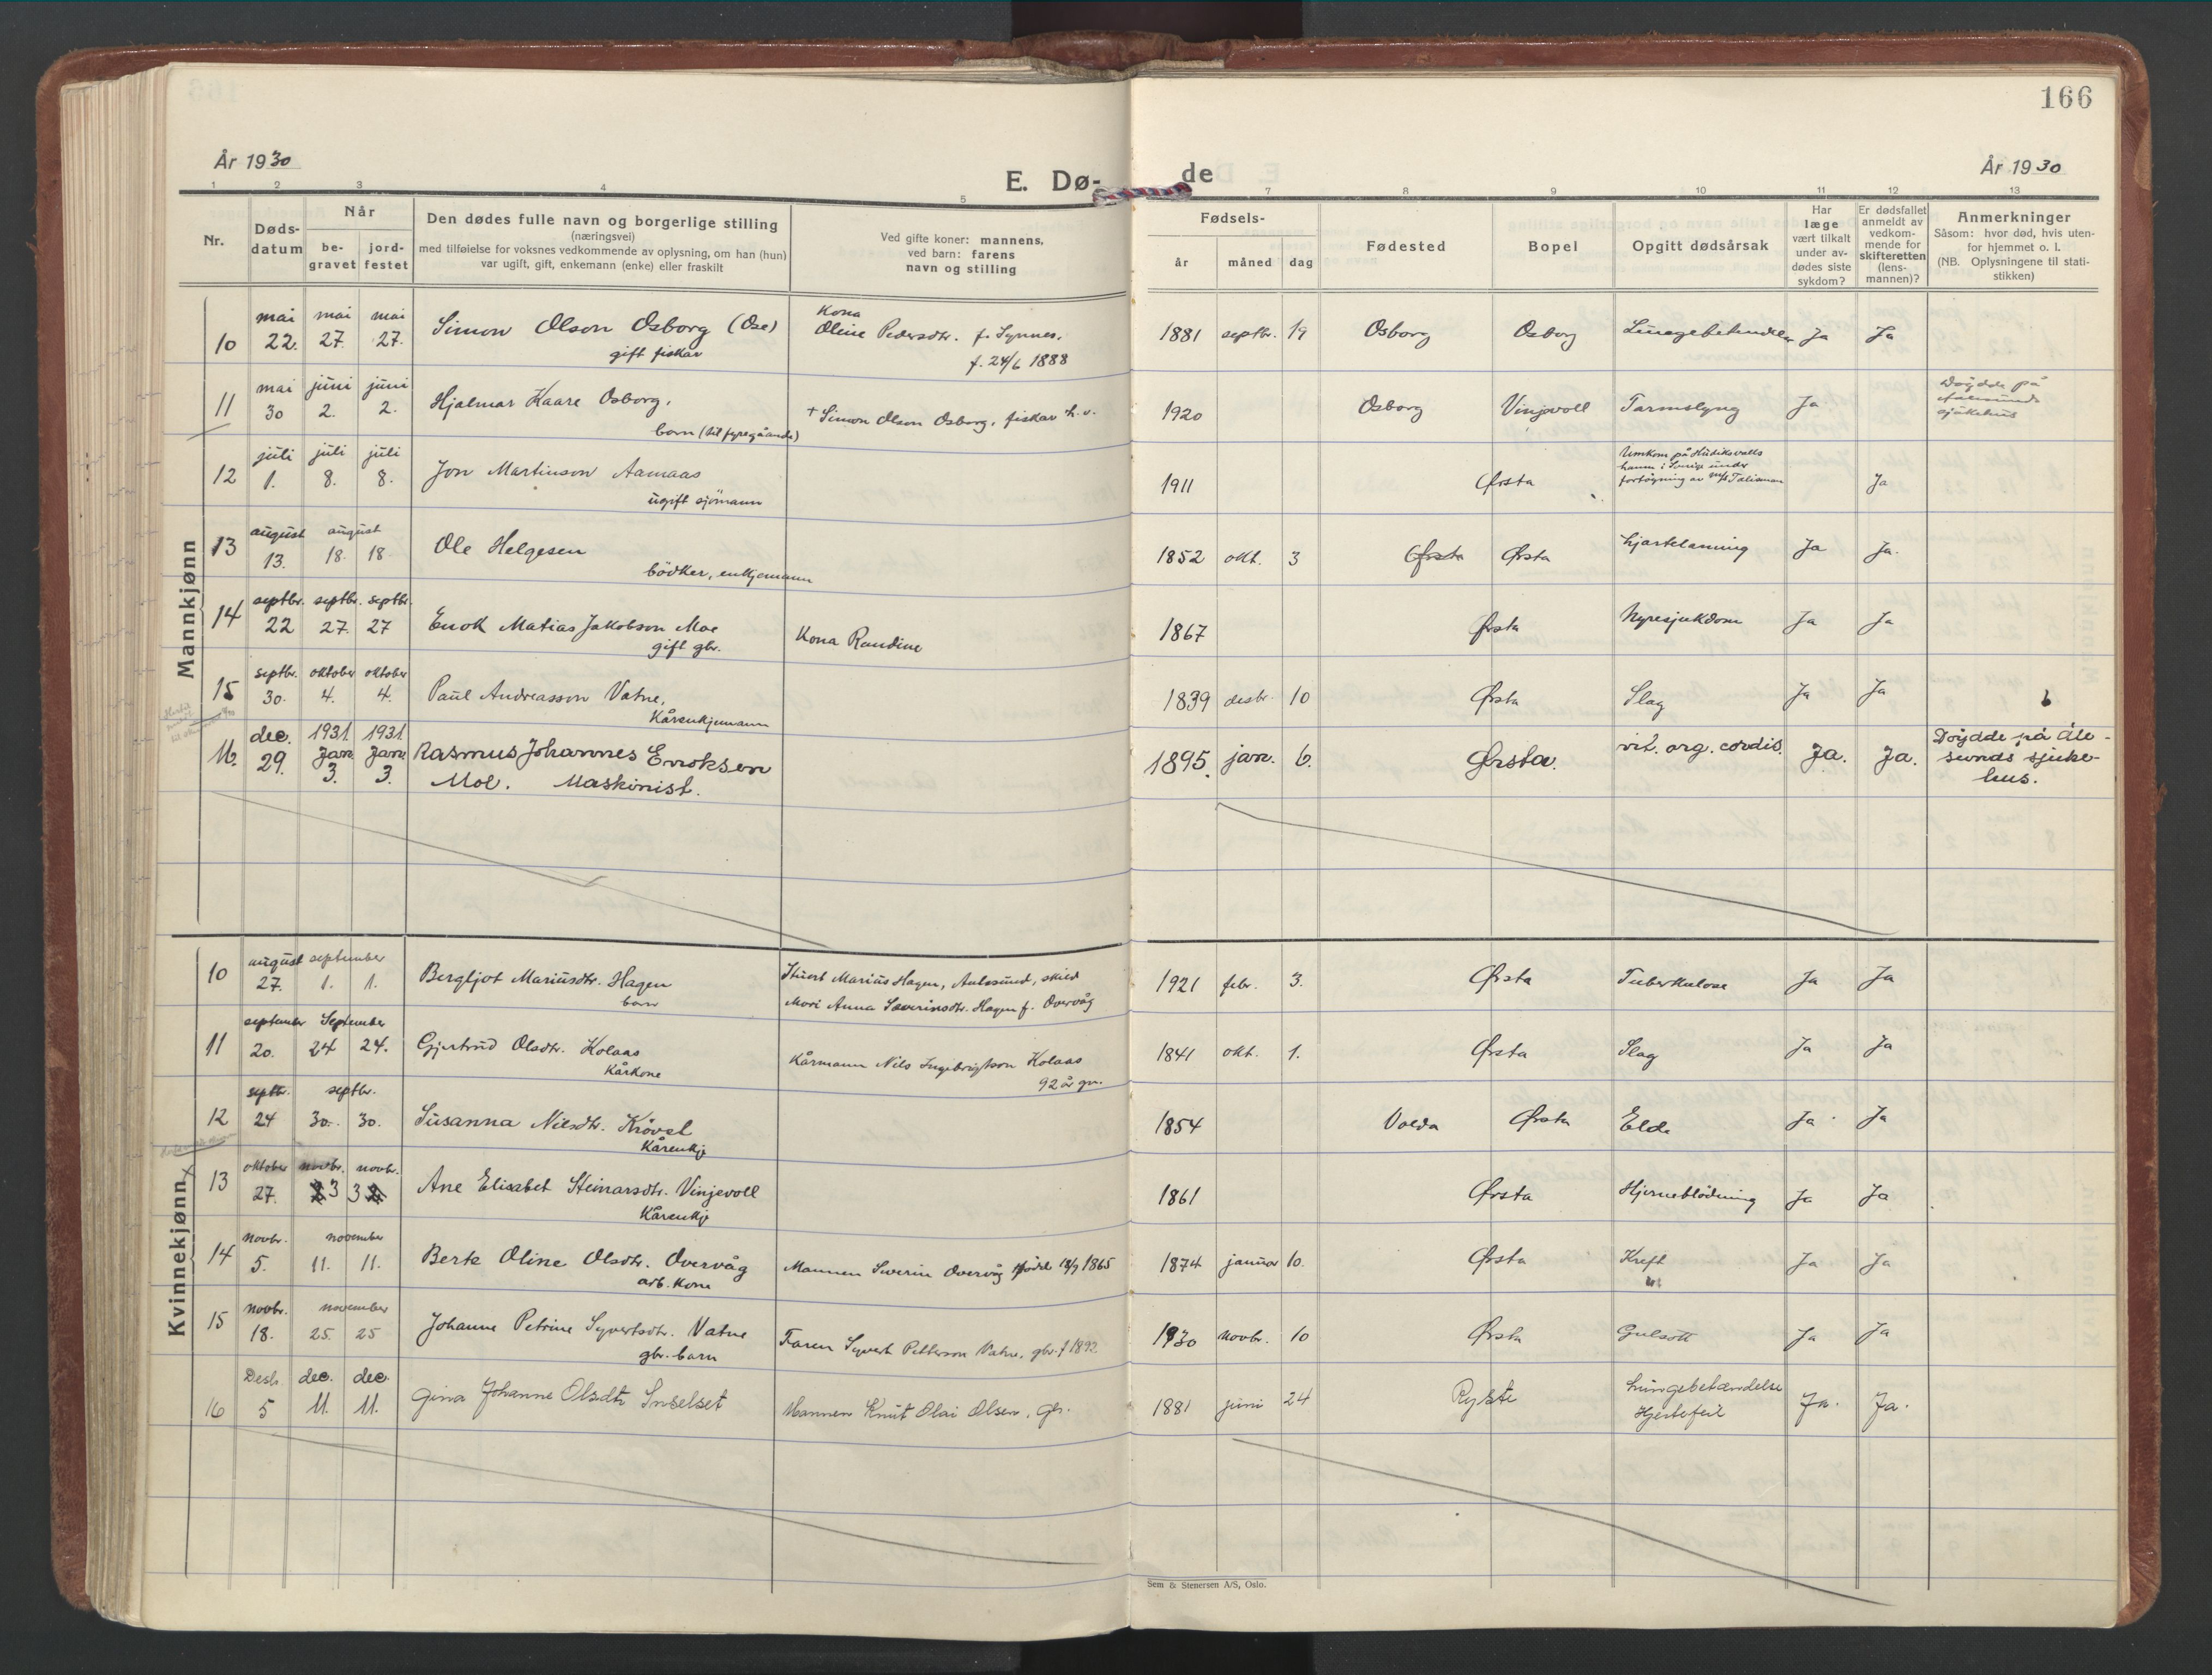 166
År 1930
E. Dø-
de
År 1930
1 2 3 4 5 7 8 9 10 11 12 13
Nr.
Døds-
datum
Når
be-
gravet
jord-
festet
Den dødes fulle navn og borgerlige stilling
(næringsvei)
med tilføielse for voksnes vedkommende av oplysning, om han (hun)
var ugift, gift, enkemann (enke) eller fraskilt
Ved gifte koner: mannens,
ved barn: farens
navn og stilling
Fødsels-
år måned dag
Fødested
Bopel
Opgitt dødsårsak
Har
læge
vært tilkalt
under av-
dødes siste
sykdom?
Er dødsfallet
anmeldt av
vedkom-
mende for
skifteretten
(lens-
mannen)?
Anmerkninger
Såsom: hvor død, hvis uten-
for hjemmet o. l.
(NB. Oplysningene til stati-
stikken)
Mannkjønn
mai mai mai Kona
10 22. 27. 27. Simon Olson Osborg (Ose) Oline Pedersdtr. f. Synnes. 1881 septbr. 19 Osborg Osborg Ja Ja
gift fiskar f. 24/6 1888
mai juni juni
11 30 2. 2. Hjalmar Kaare Osborg, + Simon Olson Osborg, fiskar h. v. 1920 Osborg Vinjevoll Tarmslyng Ja Døydde på
Aalesunds
sjukehus
born (til fyregåande)
juli juli juli
12 1. 8. 8. Jon Martinson Aamaas 1911 Ørsta Umkom på Hudiksvalls
hamn i Sverige under
fortøyning av m/s Talisman Ja
ugift sjømann
august august
13 13. 18. 18 Ole Helgesen 1852 okt. 3 Ørsta Ørsta hjartelamming Ja Ja.
bödker, enkjemann
septbr. septbr. septbr.
14 22 27. 27 Enok Matias Jakobson Moe Kona Randine 1867 Ørsta Nyresjukdom Ja Ja
gift gbr.
septbr. oktober oktober
15 30. 4. 4. Paul Andreasson Vatne, 1839 desbr. 10 Ørsta Slag Ja Ja
Kårenkjemann
dec. 1931. 1931.
16. 29. Jan. 3. Jan. 3. Rasmus Johannes Enoksen 1895. jan. 6. Ørsta. vit. org. cordis. Ja. Ja. Døydde på Åle-
sunds sjuke-
hus.
Moe. Maskinist.
Kvinnekjønn
august september
10 27. 1. 1. Bergljot Mariusdtr. Hagen Marius Hagen, Aalesund, skild 1921 febr. 3. Ørsta Tuberkulose Ja Ja
barn Mori Anna Severinsdtr. Hagen f. Overvåg
september September
11 20. 24 24. Gjertrud Olsdtr. Kolaas Kårmann Nils Ingebrigtson Kolaas 1841 okt. 1. Ørsta Slag Ja Ja
Kårkone 92 år gm.
septbr. septbr.
12 24 30. 30. Susanna Nilsdtr. Krövel 1854 Volda Ørsta Elde Ja Ja
Kårenkje
oktober novbr. novbr.
13 27. 3 3 Ane Elisabet Steinarsdtr. Vinjevoll 1861 Ørsta Hjerneblödning Ja Ja
Kårenkje
novbr. november
14 5. 11. 11. Berte Oline Olsdtr. Overvåg Mannen Severin Overvåg født 18/9 1865 1874 januar 10. Ørsta Kreft Ja Ja
arb. kone
novbr. november
15 18. 25. 25 Johanne Petrine Syvertsdtr. Vatne Faren Syvert Petterson Vatne, gbr. f 1892 1930 novbr. 10 Ørsta Gulsott Ja Ja
gbr. barn
Desbr. dec. dec.
16 5 11. 11. Gina Johanne Olsdtr Mannen Knut Olai Olsen, gbr. 1881 juni 24 Ryste Lungebetændelse
Hjertefeil Ja. Ja.
Sem & Stenersen A/S, Oslo.